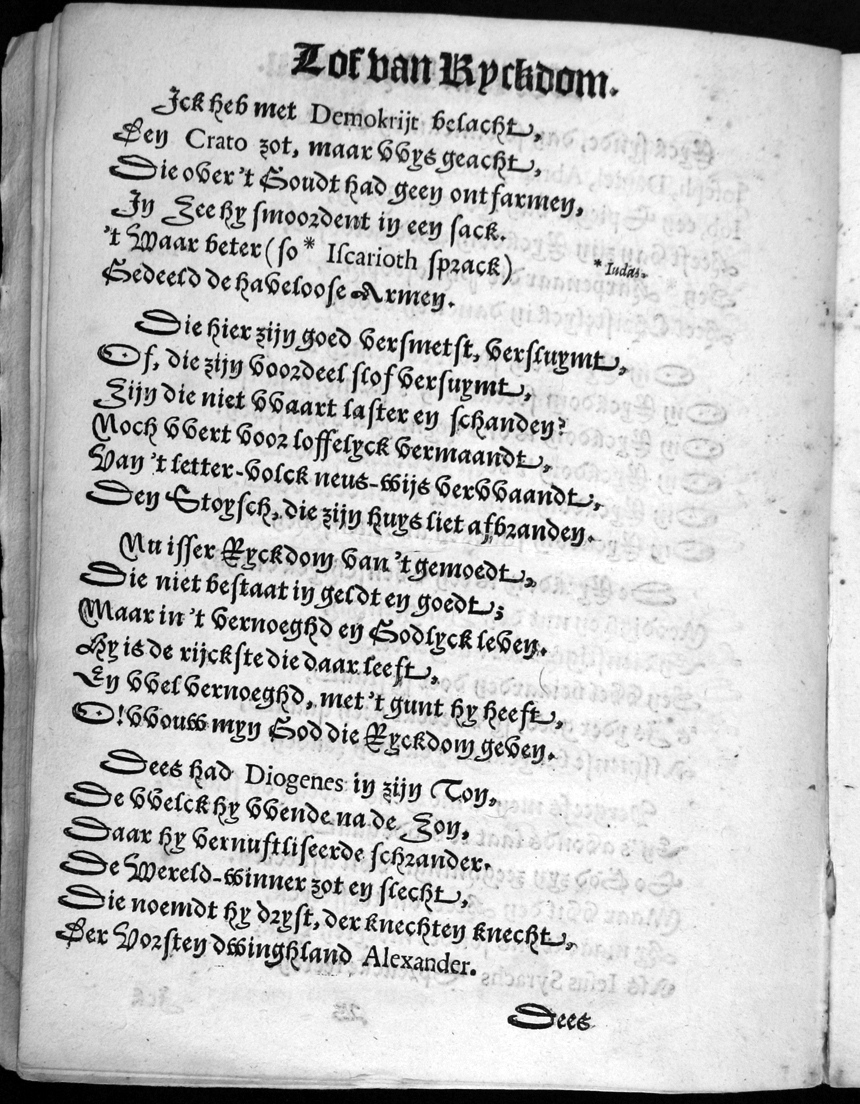 Lof van Ryckdom.
Ick heb met Demokrijt belacht,
Den Crato zot, maar vvys geacht,
Die over 't Goudt had geen ontfarmen,
In Zee hy smoordent in een sack.
't Waar beter (so * Iscarioth sprack)
* Iudas.
Gedeeld de haveloose Armen.
Die hier zijn goed versmetst, versluymt,
Of, die zijn voordeel slof versuymt,
Zijn die niet vvaart laster en schanden?
Noch vvert voor loffelyck vermaandt,
Van 't letter-volck neus-wijs vervvaandt,
Den Stoysch, die zijn huys liet afbranden.
Nu isser Ryckdom van 't gemoedt,
Die niet bestaat in geldt en goedt;
Maar in 't vernoeghd en Godlyck leven.
Hy is de rijckste die daar leeft,
En vvel vernoeghd, met 't gunt hy heeft,
O! vvouw myn God die Ryckdom geven.
Dees had Diogenes in zijn Ton,
De vvelck hy vvende na de Zon,
Daar hy vernuftliseerde schrander.
De Wereld-winner zot en slecht,
Die noemdt hy dryst, der knechten knecht,
Der Vorsten dwinghland Alexander.
Dees